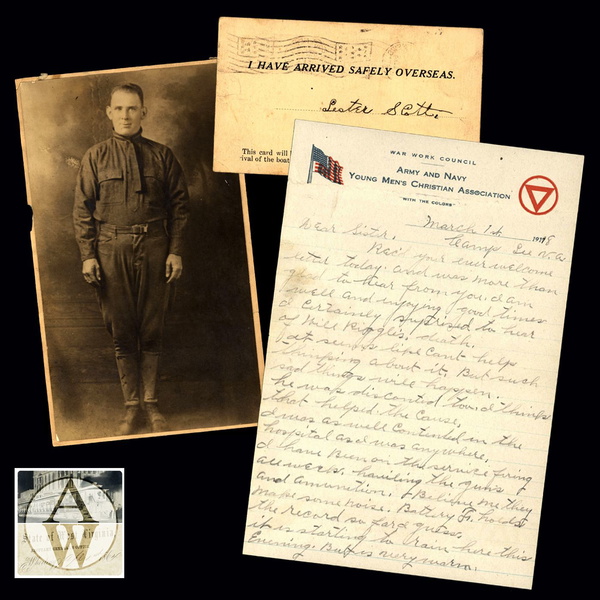 I HAVE ARRIVED SAFELY OVERSEAS.
Lester Scott
This card will
rival of the boat
WAR WORK COUNCIL
ARMY AND NAVY
YOUNG MEN'S CHRISTIAN ASSOCIATION
"WITH THE COLORS"
March 1st 1918
Dear Sister, Camp Lee Va
Rec'd your ever welcome
letter today. and was more than
glad to hear from you. I am
well and enjoying good times
I certainly surprised to hear
of Will death.
seems like cant help
thinking about it. But such
sad things will happen.
he was I think
that helped the cause,
I was as well contented in the
hospital as I was anywhere.
I have been on the service firing
all week. hauling the guns
and ammunition. I Believe me they
make some noise. Battery F. holds
the record so far I guess.
it is starting to rain here this
Evening. But is very warm.
A
W
State of West Virginia